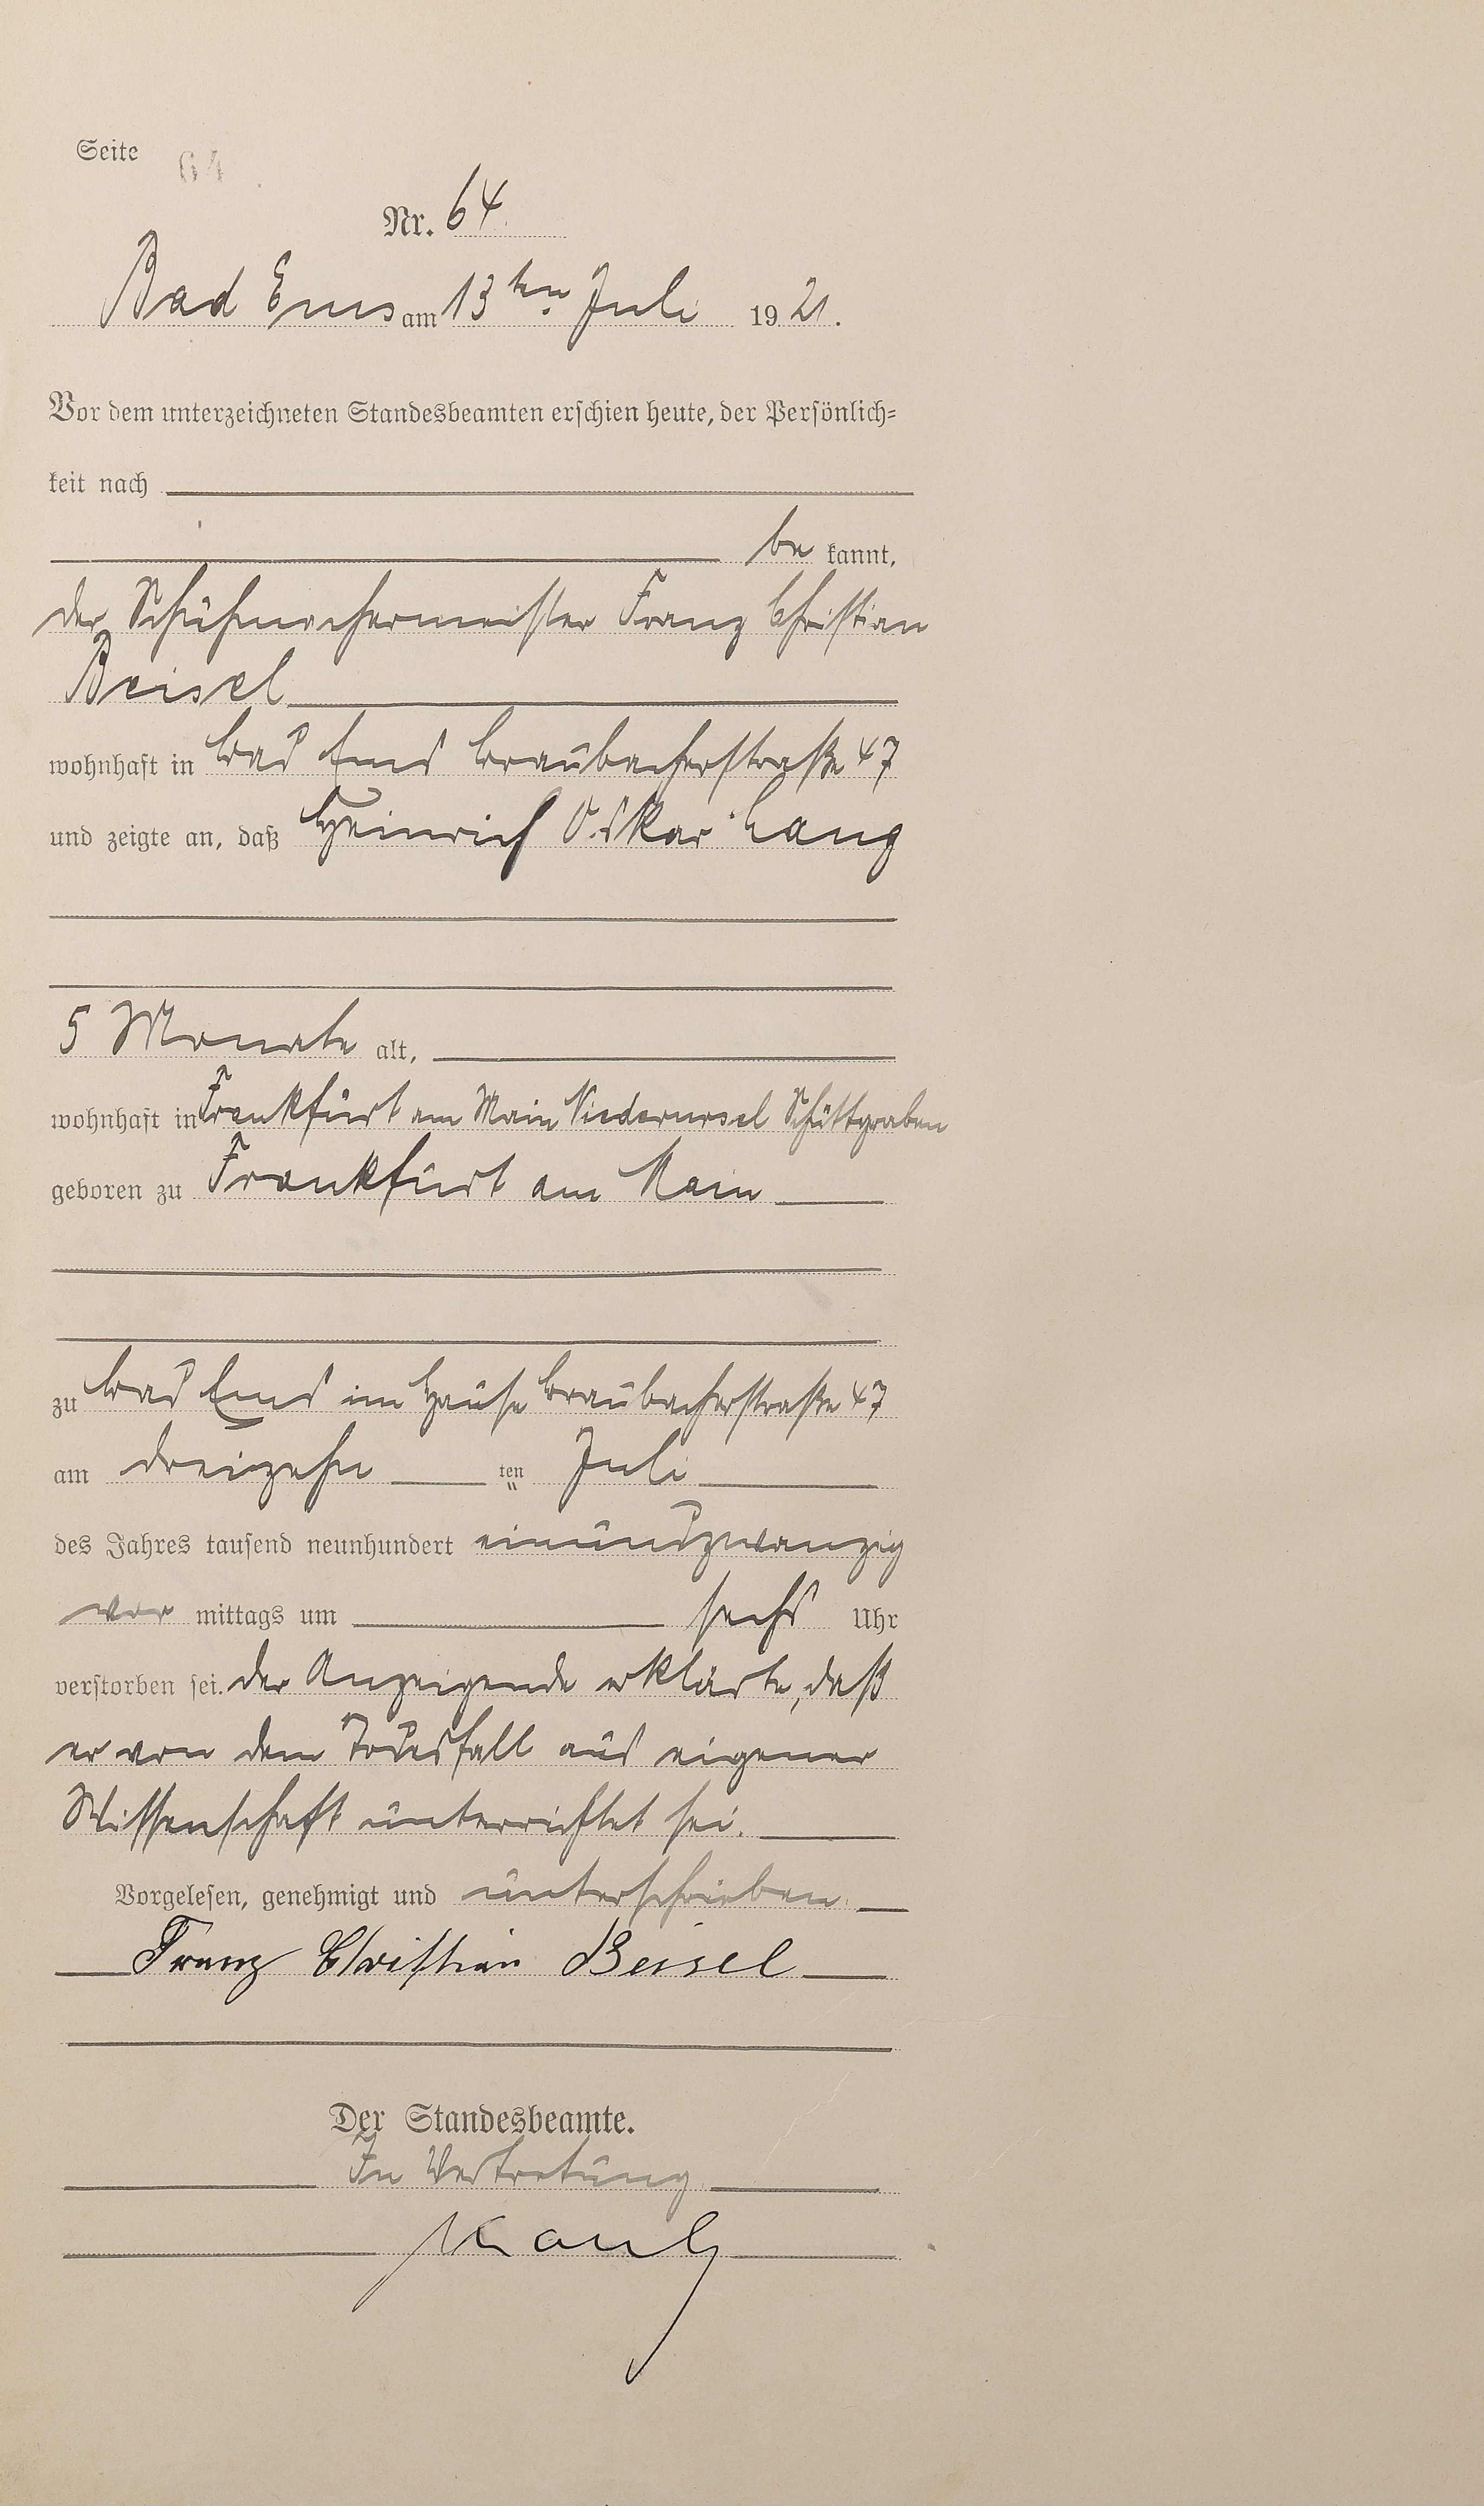 Seite 64
Nr. 64
Bad Ems am 13ten Juli 1921.
Vor dem unterzeichneten Standesbeamten erschien heute, der Persönlich=
keit nach
be kannt,
der Schuhmachermeister Franz Christian
Beisel
wohnhaft in Bad Ems Braubacherstraße 47
und zeigte an, daß Heinrich Oskar Lang
5 Monate alt,
wohnhaft in Frankfurt am Main Niederursel Schüttgraben
geboren zu Frankfurt am Main
zu Bad Ems im Hause Braubacherstraße 47
am dreizehn ten Juli
des Jahres tausend neunhundert einundzwanzig
vor mittags um sechs Uhr
verstorben sei. Der Anzeigende erklärte, daß
er von dem Todesfall aus eigener
Wissenschaft unterrichtet sei.
Vorgelesen, genehmigt und unterschrieben
Franz Christian Beisel
Der Standesbeamte.
In Vertretung